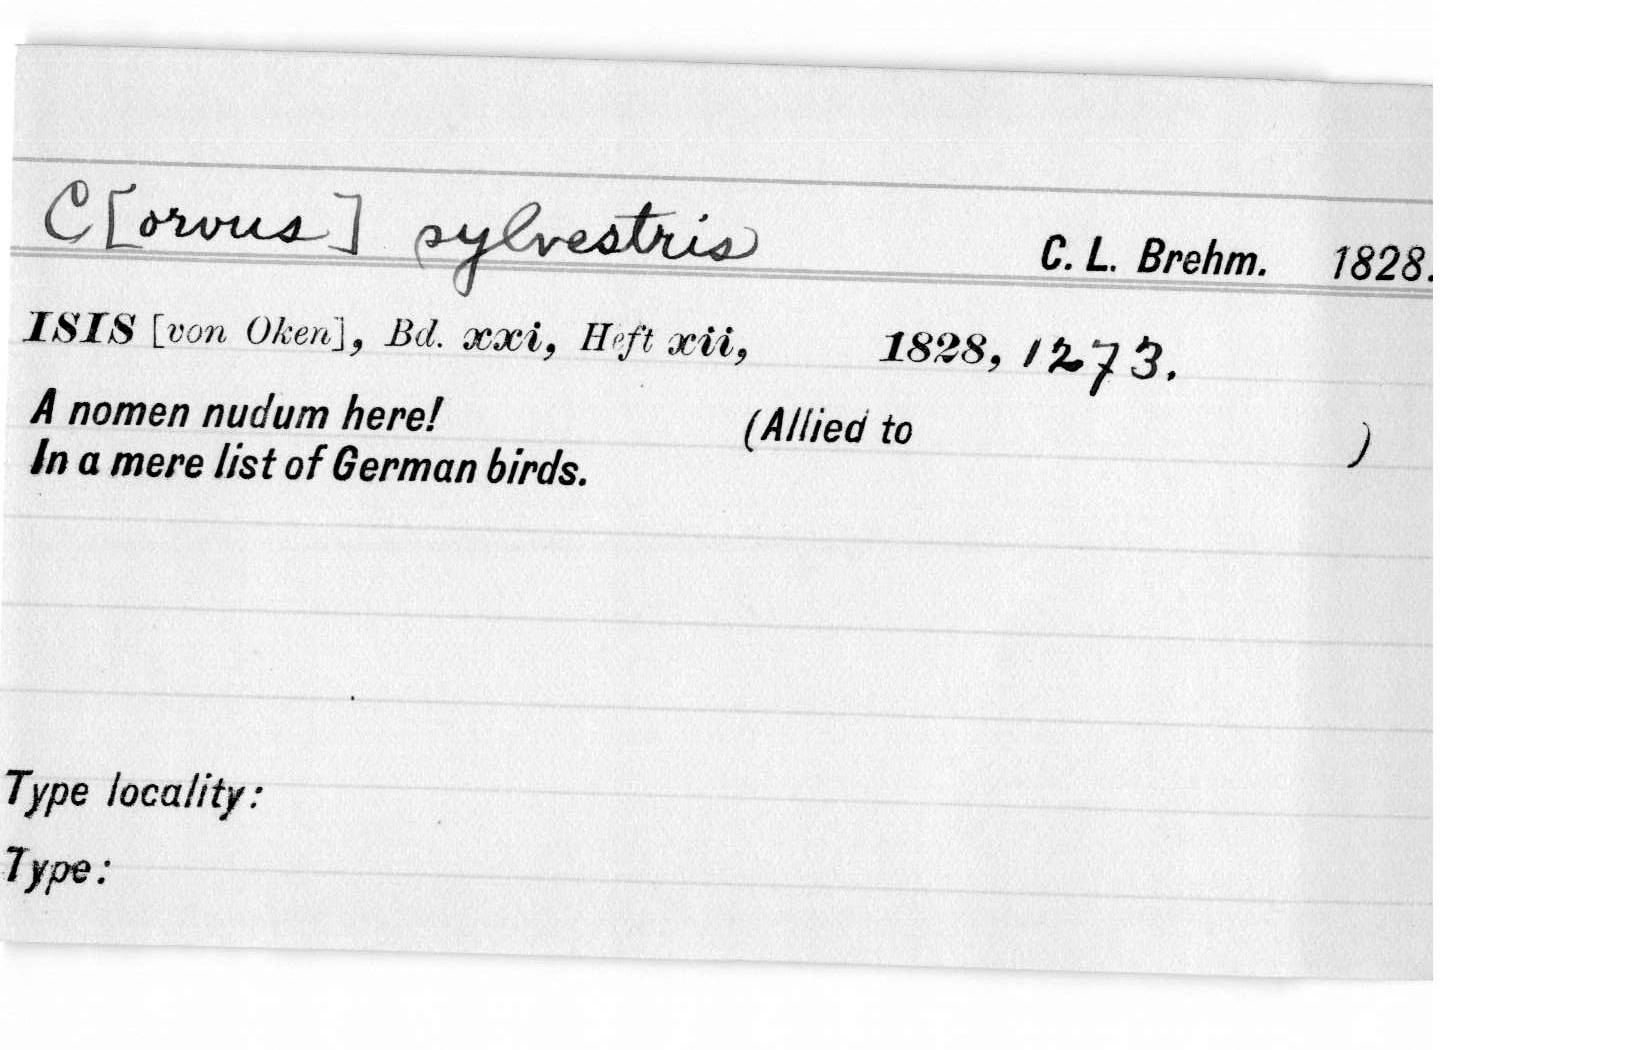 C[orvus] sylvestris C. L. Brehm. 1828.
ISIS [von Oken], Bd. xxi, Heft xii, 1828, 1273.
A nomen nudum here! (Allied to )
In a mere list of German birds.
Type locality:
Type: